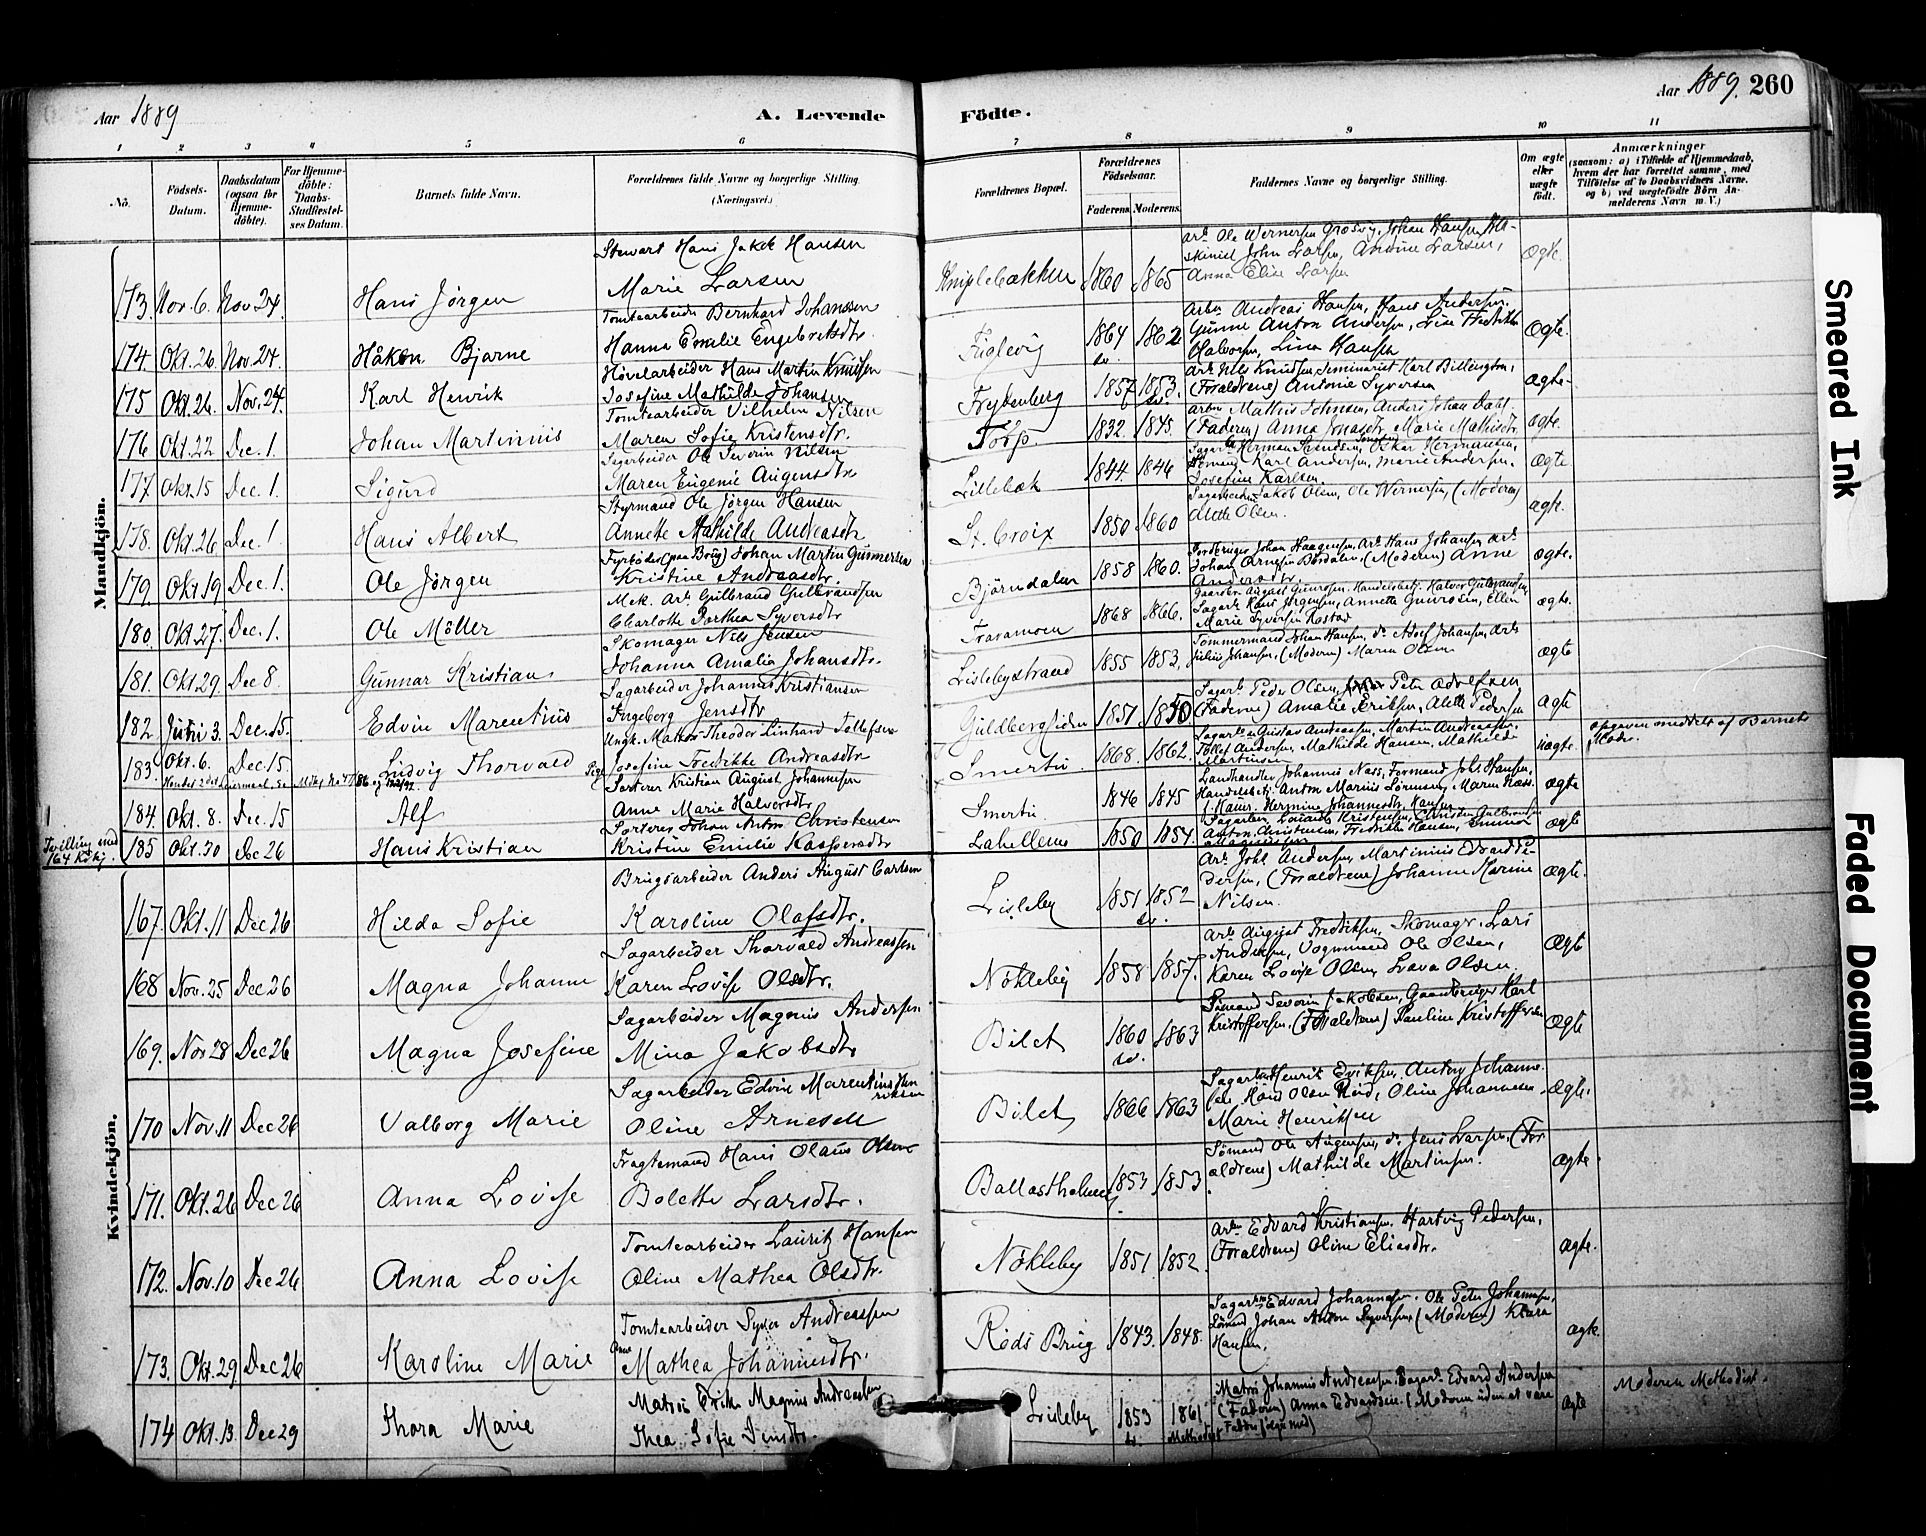 Aar 1889
A. Levende
Födte.
Aar 1889. 260
1 2 3 4 5 6 7 8 9 10 11
No.
Födsels-
Datum.
Daabsdatum
(ogsaa for
Hjemme-
döbte).
For Hjemme-
döbte:
Daabs-
Stadfæstel-
ses Datum.
Barnets fulde Navn.
Forældrenes fulde Navne og borgerlige Stilling.
(Næringsvei.)
Forældrenes Bopæl.
Forældrenes
Födselsaar.
Faderens Moderens
Faddernes Navne og borgerlige Stilling.
Om ægte
eller
uægte
födt.
Anmærkninger
(saasom: a) i Tilfælde af Hjemmedaab,
hvem der har forrettet samme, med
Tilföielse af to Daabsvidners Navne,
og b) ved uægtefödte Börn An-
melderens Navn m. V.)
Mandkjön.
173. Nov. 6. Nov 24. Hans Jørgen
Stewart Hans Jakob Hansen
Marie Larsen
1860 1865
John Larsen, Antoine Larsen,
Anna Elise Larsen
Ægte.
174. Okt. 26. Nov. 24. Håkon Bjarne
Tomtearbeider Bernhard Johanssen
Hanna Emilie Engebretsdtr.
Fuglevig 1864 1862
Arbr. Andreas Hansen, Hans Andersen.
Gunne Anton Andersen, Lise Fredrikke
Halvorsen, Lina Hansen
Ægte.
175 Okt. 26. Nov. 24. Karl Henrik
Høvelarbeider Hans Martin Knudsen
Josefine Mathilde Johansen
Frydenberg 1857 1853.
Arb. Nils Knudsen, Seminarist Karl Billington,
(Forældrene) Antonie Syversen
Ægte.
176 Okt. 22 Dec. 1. Johan Martinius
Tomtearbeider Vilhelm Nilsen
Maren Sofie Kristensdtr.
Torp. 1832. 1845.
Arbr. Mathis Johnsen, Anders Johan Dahl,
(Faderen) Anna Jonasdtr, Marie Mathisdtr.
Ægte.
177. Okt. 15 Dec. 1. Sigurd
Sagarbeider Ole Severin Nilsen
Maren Eugenie Augensdtr.
Lillebæk 1844. 1846
Karl Andersen, Marie Andersen.
Josefine Karlsen.
Ægte
178. Okt. 26 Dec. 1. Hans Albert
Styrmand Ole Jørgen Hansen
Annette Mathilde Andreasdtr
St. Croix 1850 1860
Jakob Olsen, Ole Wernersen, (Moderen)
Alette Olsen.
Ægte.
179. Okt. 19 Dec. 1. Ole Jørgen
Fyrbøder (paa Brug) Johan Martin Gunnersen
Kristine Andreasdtr.
Bjørndalen 1858 1860.
Johan Haagensen, Arb. Hans Johansen, Arb.
Johan Arnesen Bjørdalen, (Moderen) Anne
Andersdtr.
Ægte.
180. Okt. 27. Dec. 1. Ole Möller
Mek. Arb. Gulbrand Gulbrandsen
Charlotte Dorthea Syversdtr
Traramoen 1868 1866.
August Gunrosen, Handelsbetj. Halvor Gulbrandsen,
Sagarb. Hans Jørgensen, Annette Gunrosen, Ellen
Marie Syversen
Ægte.
181. Okt. 29. Dec 8. Gunnar Kristian
Skomager Nils Jensen
Johanna Amalia Johansdtr.
Lislebystrand 1855 1853.
Tømmermand Johan Hansen, do Adolf Johansen, Arb.
Julius Johansen, (Moderen) Maren Olsen
Ægte
182. Juni 3. Dec. 15. Edvin Marentius
Sagarbeider Johannes Kristiansen
Ingeborg Jensdtr
Guldbergsiden 1851 1850
Sagarb. Peder Olsen, Peter Adolfsen
(Faderne) Amalie Eriksen, Alette Pedersen
Ægte
183. Okt. 6. Dec. 15 Ludvig Thorvald
Ungk. Matros Theodor Linhard Tollefsen
Pige Josefine Fredrikke Andreasdtr
Smertu 1868. 1862.
Gustav Andreassen, Martin Andreassen,
Tollef Andersen, Mathilde Hansen, Mathilde
Martinsen
Uægte.
Opgaven meddelt af Barnets
Moder.
184. Okt. 8. Dec. 15 Alf
Sorterer Kristian August Johannesen
Anne Marie Halvorsdtr
Smertu. 1846 1845
Landhandler Johannis Næss, Formand Joh. Hansen,
Handelsbetj. Anton Marius Sørensen, Maren Næss.
Hermine Johannesdtr. Hansen
Ægte
Tvilling med
164 Kvkj.
185 Okt. 30 Dec 26 Hans Kristian
Sorterer Johan Anton Christensen
Kristine Emilie Kaspersdtr
Lahellem 1850 1854.
Anton Christensen, Fredrikke Hansen,
Magnussen
Ægte
Kvindekjön.
167. Okt. 11 Dec 26 Hilda Sofie
Brugsarbeider Anders August Carlsen
Karoline Olafsdtr.
Lisleby 1851 1852
Arb. Johs. Andersen, Martinius Edvard Pe-
dersen, (Forældrene) Johanne Karine
Nilsen.
Ægte.
168 Nov. 25 Dec 26 Magna Johanne
Sagarbeider Thorvald Andreassen
Karen Lovise Olsdtr.
Nökleby 1858 1857.
Arb. August Fredriksen, Skomagr. Lars
Andersen, Vognmand Ole Olsen,
Karen Lovise Olsen, Lava Olsen.
Ægte
169. Nov 28 Dec 26 Magna Josefine
Sagarbeider Magnus Andersen
Mina Jakobsdtr
Bilet 1860 1863
Sömand Severin Jakobsen, Gaardbruger Karl
Kristoffersen, (Forældrene) Pauline Kristoffersen
Ægte
170 Nov. 11 Dec 26 Valborg Marie
Sagarbeider Edvin Marentius Hen
riksen
Oline Arnesen
Bilet 1866 1863
Henrik Eriksen, Anton Johanne-
sen, Hans Olsen, Oline Johannesen,
Marie Henriksen
Ægte.
171. Okt. 26 Dec 26 Anna Lovise
Fragtemand Hans Olaus Olsen
Bolette Larsdtr.
Ballastholmen 1853 1853
Sömand Ole Augensen, do Jens Larsen, (For
ældrene) Mathilde Martinsen.
Ægte.
172. Nov. 10 Dec 26 Anna Lovise
Tomtearbeider Lauritz Hansen
Oline Mathea Olsdtr.
Nökleby 1851. 1852.
Arbr. Edvard Kristiansen, Hartvig Pedersen,
(Forældrene) Oline Eliasdtr.
Ægte.
173. Okt. 29 Dec 26 Karoline Marie
Tomtearbeider Syver Andreassen
Anne Mathea Johannesdtr.
Röds Brug 1843. 1848.
Edvard Johannesen, Ole Peter Johannesen,
Sömand Johan Anton Syversen, (Moderen) Klara
Hansen.
Ægte.
174 Okt. 13. Dec 29 Thora Marie
Matros Erik Magnus Andreassen
Thea Sofie Jensdtr.
Lisleby 1853 1861
Methodist
Matros Johannis Andreassen, Sagarb. Edvard Andersen
(Faderen) Anna Edvardsen. (Moderen uden at være
Fadder)
Ægte
Moderen Methodist.
Smeared Ink
Faded Document